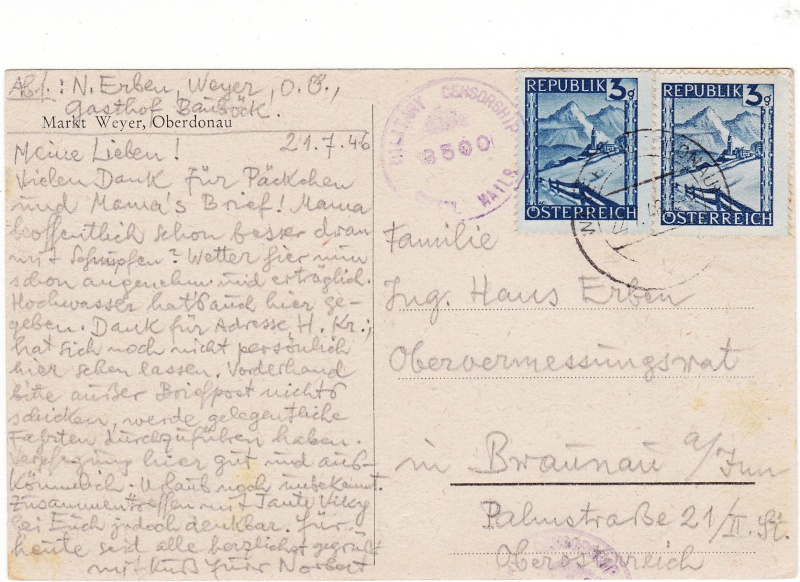 Abs.: N. Erben, Weyer, O.Ö.,
Gasthof Bauböck.
Markt Weyer, Oberdonau
21.7.46
Meine Lieben!
Vielen Dank für Päckchen
und Mama's Brief! Mama
hoffentlich schon besser dran
mit Schnupfen? Wetter hier nun
schon angenehm und erträglich.
Hochwasser hat's auch hier ge-
geben. Dank für Adresse, H. Kr.,
hat sich noch nicht persönlich
hier sehen lassen. Vorderhand
bitte außer Briefpost nichts
schicken, werde gelegentliche
Fahrten durchzuführen haben.
Verpflegung hier gut und aus-
kömmlich. Urlaub noch unbekannt.
Zusammentreffen mit Tante Vicky
bei Euch jedoch denkbar. Für
heute seid alle herzlichst gegrüßt
mit Kuß Euer Norbert
MILITARY CENSORSHIP
3500
MAILS
REPUBLIK 3g
ÖSTERREICH
REPUBLIK 3g
ÖSTERREICH
Familie
Ing. Hans Erben
Obervermessungsrat
in Braunau a/Inn
Palmstraße 21/II. St.
Oberösterreich